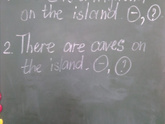 on the island. ⊖, ?
2. There are caves on
the island. ⊖, ?